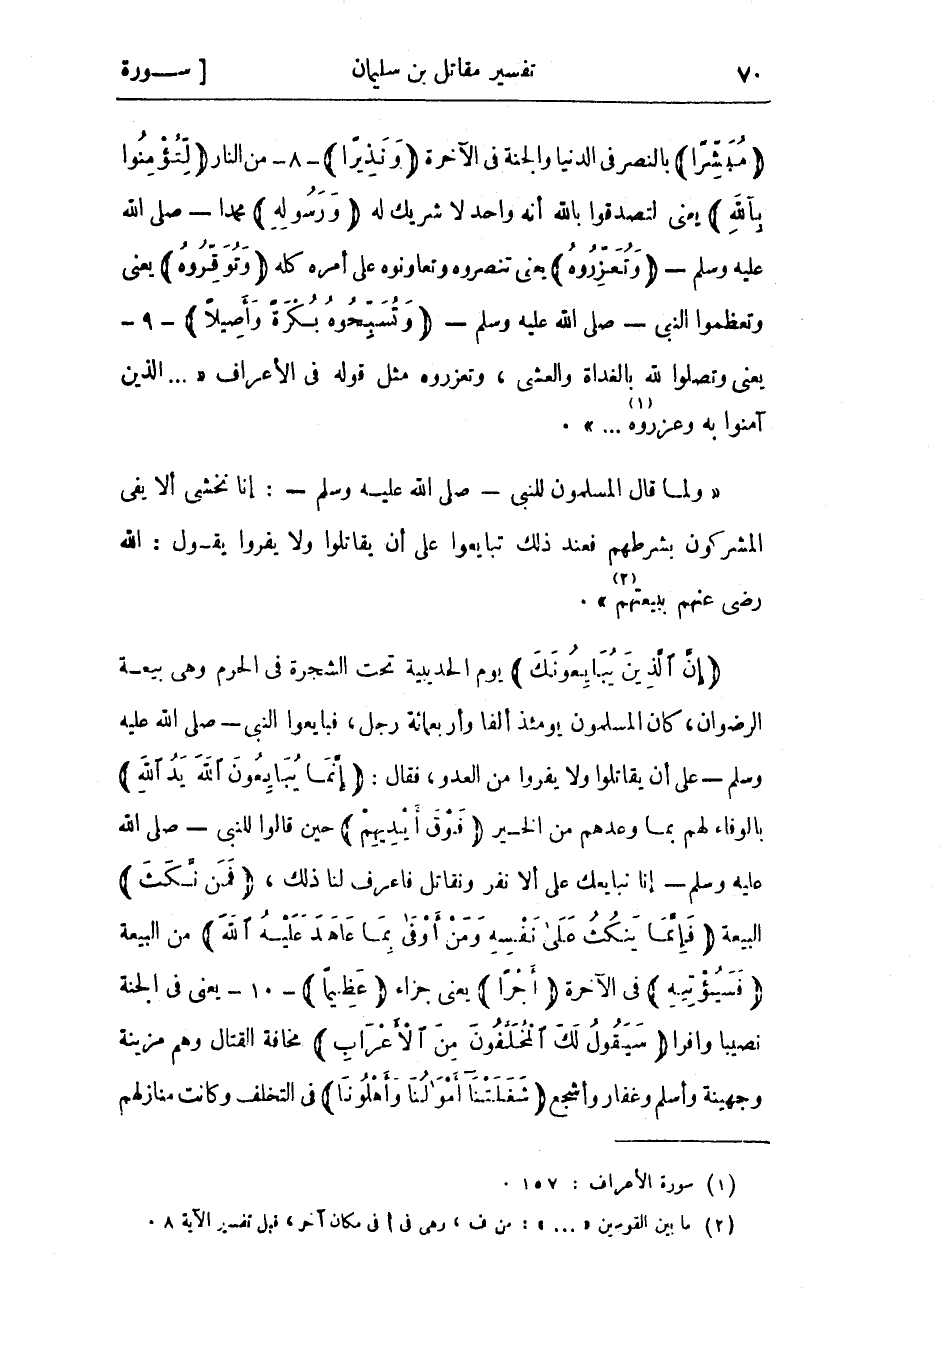 ٧٠ تفسير مقاتل بن سليمان [ ســـورة
﴿ مُبَشِّرًا ﴾ بالنصر فى الدنيا والجنة فى الآخرة ﴿ وَنَذِيرًا ﴾ - ٨ - من النار ﴿ لِّتُؤْمِنُوا
بِٱللَّهِ ﴾ يعنى لتصدقوا بالله أنه واحد لا شريك له ﴿ وَرَسُولِهِ ﴾ محمدا — صلى الله
عليه وسلم — ﴿ وَتُعَزِّرُوهُ ﴾ يعنى تنصروه وتعاونوه على أمره كله ﴿ وَتُوَقِّرُوهُ ﴾ يعنى
وتعظموا النبى — صلى الله عليه وسلم — ﴿ وَتُسَبِّحُوهُ بُكْرَةً وَأَصِيلًا ﴾ - ٩ -
يعنى وتصلوا لله بالغداة والعشى ، وتعزروه مثل قوله فى الأعراف « ... الذين
آمنوا به وعزروه (١) ... » .
« ولمـا قال المسلمون للنبى — صلى الله عليـه وسلم — : إنا نخشى ألا يفى
المشركون بشرطهم فعند ذلك تبايعوا على أن يقاتلوا ولا يفروا يقـول : الله
رضى عنهم ببيعتهم (٢) » .
﴿ إِنَّ ٱلَّذِينَ يُبَايِعُونَكَ ﴾ يوم الحديبية تحت الشجرة فى الحرم وهى بيعـة
الرضوان، كان المسلمون يومئذ ألفا وأربعمائة رجل، فبايعوا النبى — صلى الله عليه
وسلم — على أن يقاتلوا ولا يفروا من العدو، فقال : ﴿ إِنَّمَـا يُبَايِعُونَ ٱللَّهَ يَدُ ٱللَّهِ ﴾
بالوفاء لهم بمـا وعدهم من الخـير ﴿ فَوْقَ أَيْدِيهِمْ ﴾ حين قالوا للنبى — صلى الله
عليه وسلم — إنا نبايعك على ألا نفر ونقاتل فاعرف لنا ذلك ، ﴿ فَمَن نَّـكَثَ ﴾
البيعة ﴿ فَإِنَّمَـا يَنكُثُ عَلَىٰ نَفْسِهِ وَمَنْ أَوْفَىٰ بِمَـا عَاهَدَ عَلَيْـهُ ٱللَّهَ ﴾ من البيعة
﴿ فَسَيُؤْتِيـهِ ﴾ فى الآخرة ﴿ أَجْرًا ﴾ يعنى جزاء ﴿ عَظِيمًا ﴾ - ١٠ - يعنى فى الجنة
نصيبا وافرا ﴿ سَيَقُولُ لَكَ ٱلْمُخَلَّفُونَ مِنَ ٱلْأَعْرَابِ ﴾ مخافة القتال وهم مزينة
وجهينة وأسلم وغفار وأشجع ﴿ شَغَلَتْنَآ أَمْوَٰلُنَا وَأَهْلُونَا ﴾ فى التخلف وكانت منازلهم
(١) سورة الأعراف : ١٥٧ .
(٢) ما بين القوسين « ... » : من ف ، وهى فى أ فى مكان آخر، قبل تفسير الآية ٨ .